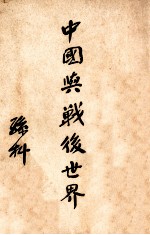 中國與戰後世界
孫科